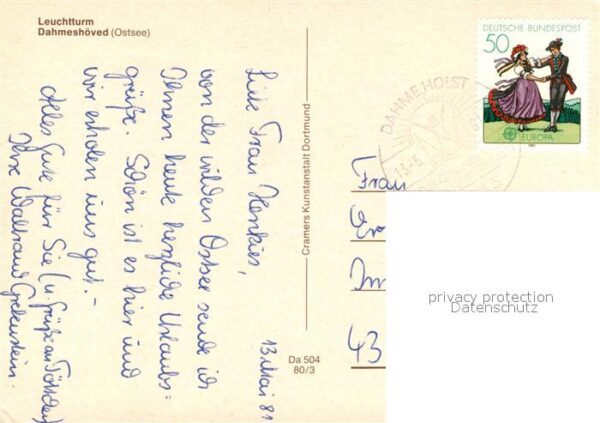 Leuchtturm
Dahmeshöved (Ostsee)
13. Mai 81
Liebe Frau Henkies,
von der wilden Ostsee sende ich
Ihnen heute herzliche Urlaubs-
grüße. Schön ist es hier und
wir erholen uns gut. -
Alles Gute für Sie (u. Grüße an
Ihre Waltraud
Cramers Kunstanstalt Dortmund
Da 504
80/3
DEUTSCHE BUNDESPOST
50
EUROPA
DAHME, HOLST
Frau
Im
43
privacy protection
Datenschutz